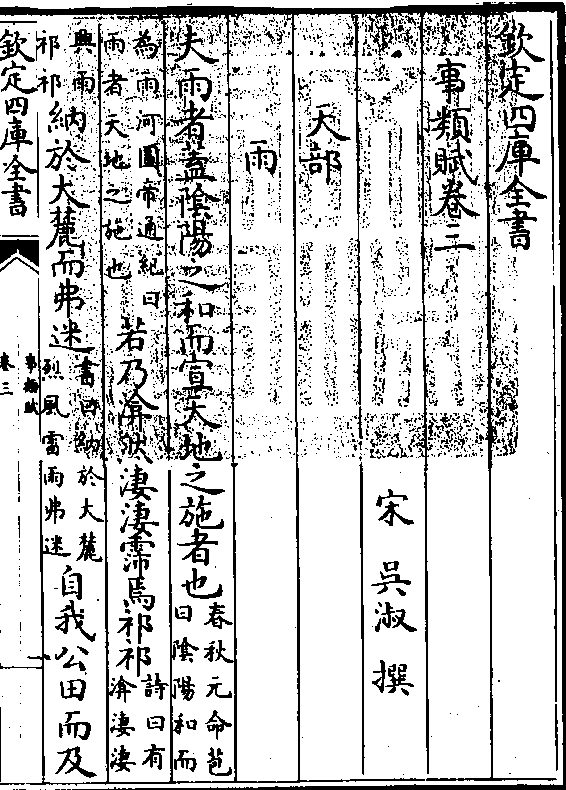 欽定四庫全書
事類賦卷三
宋 吳淑 撰
天部
雨
夫雨者蓋陰陽之和而宣天地之施者也春秋元命苞曰陰陽和而
為雨河圖帝通紀曰雨者天地之施也若乃渰然淒淒霈焉祁祁詩曰有渰淒淒
興雨祁祁納於大麓而弗迷書曰納於大麓烈風雷雨弗迷自我公田而及
欽定四庫全書
事類賦
卷三